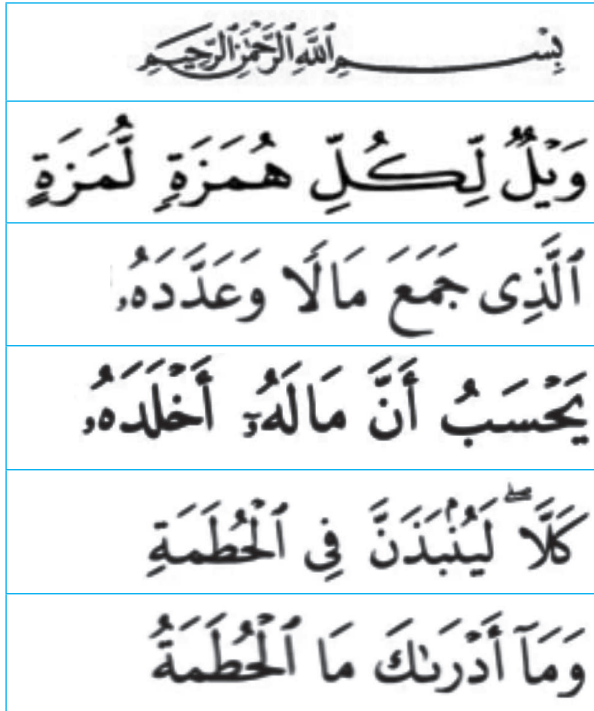 بِسْمِ ٱللَّهِ ٱلرَّحْمَٰنِ ٱلرَّحِيمِ
وَيْلٌ لِّكُلِّ هُمَزَةٍ لُّمَزَةٍ
ٱلَّذِى جَمَعَ مَالًا وَعَدَّدَهُۥ
يَحْسَبُ أَنَّ مَالَهُۥٓ أَخْلَدَهُۥ
كَلَّا ۖ لَيُنۢبَذَنَّ فِى ٱلْحُطَمَةِ
وَمَآ أَدْرَىٰكَ مَا ٱلْحُطَمَةُ